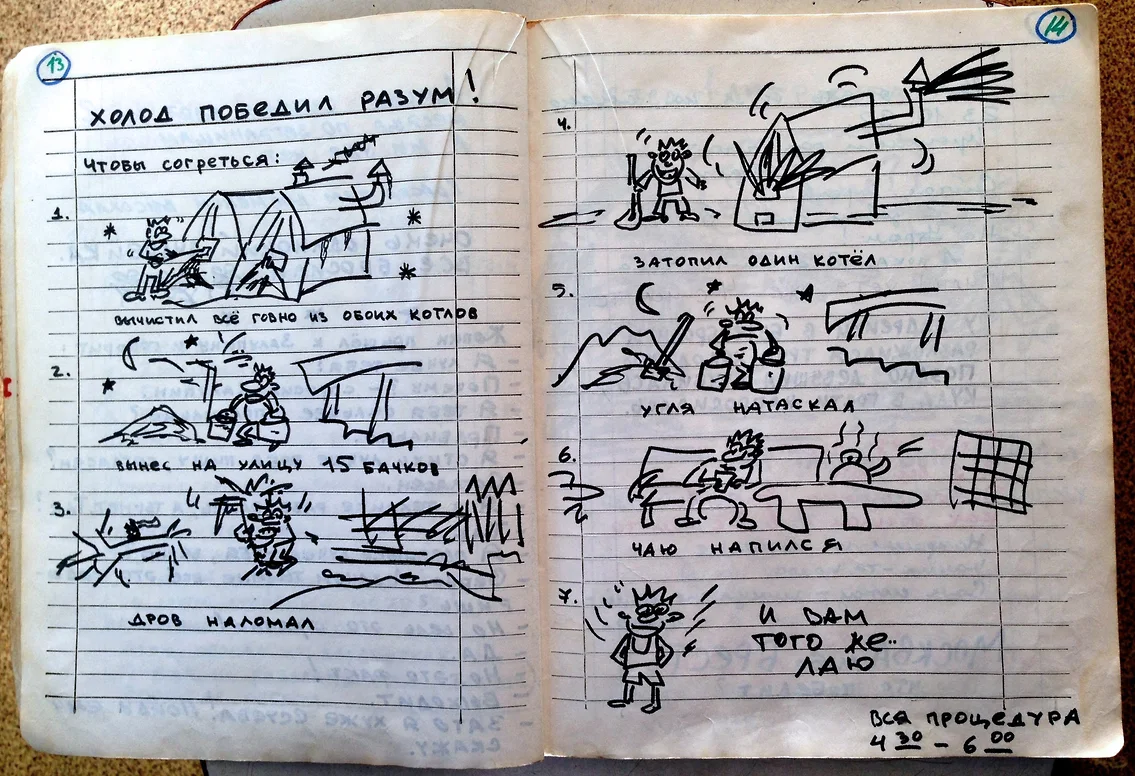 13
ХОЛОД ПОБЕДИЛ РАЗУМ!
ЧТОБЫ СОГРЕТЬСЯ:
1.
ВЫЧИСТИЛ ВСЁ ГОВНО ИЗ ОБОИХ КОТЛОВ
2.
ВЫНЕС НА УЛИЦУ 15 БАЧКОВ
3.
ДРОВ НАЛОМАЛ
14
4.
ЗАТОПИЛ ОДИН КОТЁЛ
5.
УГЛЯ НАТАСКАЛ
6.
ЧАЮ НАПИЛСЯ
7.
И ВАМ
ТОГО ЖЕ..
ЛАЮ
ВСЯ ПРОЦЕДУРА
4 30 – 6 00